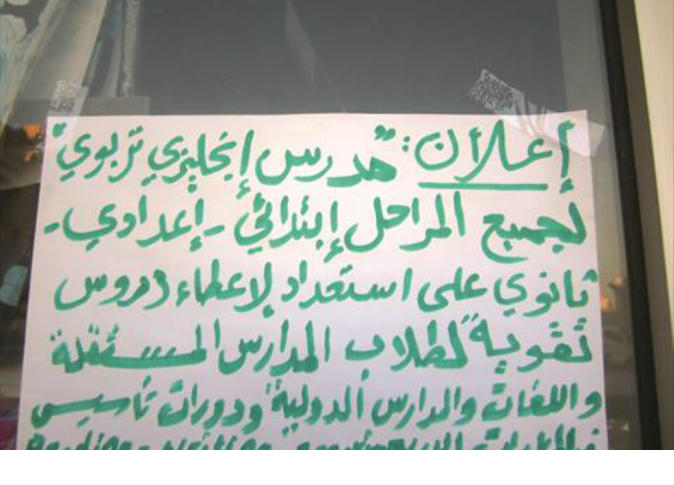 إعلان: "مدرس إنجليزي تربوي"
لجميع المراحل إبتدائي - إعدادي -
ثانوي على استعداد لإعطاء دروس
تقوية لطلاب المدارس المستقلة
واللغات والمدارس الدولية ودورات تأسيس